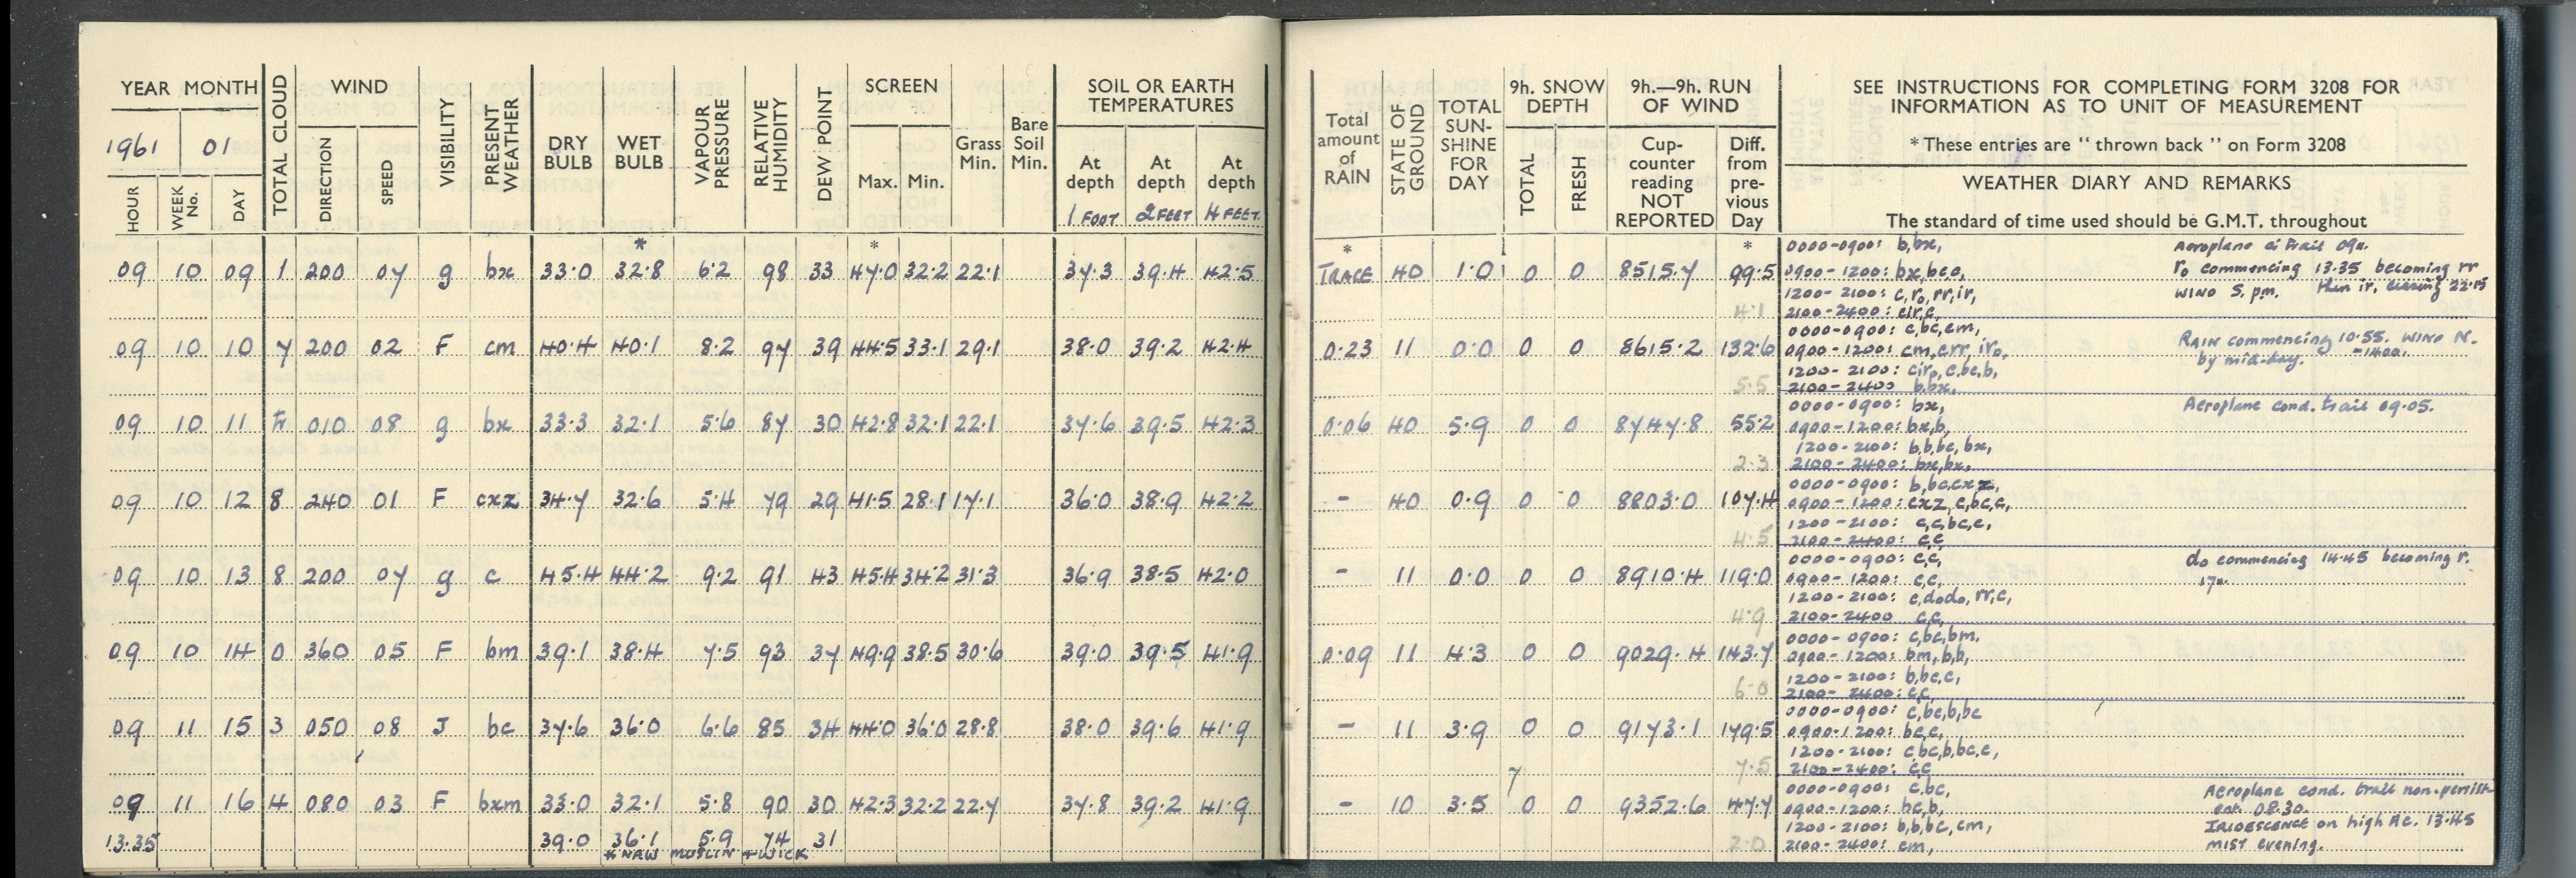 YEAR MONTH
1961 01
HOUR
WEEK No.
DAY
TOTAL CLOUD
WIND
DIRECTION
SPEED
VISIBILITY
PRESENT WEATHER
DRY BULB
WET BULB
VAPOUR PRESSURE
RELATIVE HUMIDITY
DEW POINT
SCREEN
Max. Min.
Grass Min.
Bare Soil Min.
SOIL OR EARTH TEMPERATURES
At depth At depth At depth
1 FOOT 2 FEET 4 FEET
* *
09 10 09 1 200 07 g bx 33.0 32.8 6.2 98 33 47.0 32.2 22.1 37.3 39.4 42.5
09 10 10 7 200 02 F cm 40.4 40.1 8.2 97 39 44.5 33.1 29.1 38.0 39.2 42.4
09 10 11 010 08 g bx 33.3 32.1 5.6 87 30 42.8 32.1 22.1 37.6 39.5 42.3
09 10 12 8 240 01 F cxz 34.7 32.6 5.4 79 29 41.5 28.1 17.1 36.0 38.9 42.2
09 10 13 8 200 07 g c 45.4 44.2 9.2 91 43 45.4 34.2 31.3 36.9 38.5 42.0
09 10 14 0 360 05 F bm 39.1 38.4 7.5 93 37 49.9 38.5 30.6 39.0 39.5 41.9
09 11 15 3 050 08 J bc 37.6 36.0 6.6 85 34 44.0 36.0 28.8 38.0 39.6 41.9
09 11 16 4 080 03 F bxm 33.0 32.1 5.8 90 30 42.3 32.2 22.7 37.8 39.2 41.9
13.35 39.0 36.1 5.9 74 31
* NEW MUSLIN + WICK
Total amount of RAIN
STATE OF GROUND
TOTAL SUN-SHINE FOR DAY
9h. SNOW DEPTH
TOTAL
FRESH
9h.—9h. RUN OF WIND
Cup-counter reading NOT REPORTED
Diff. from pre-vious Day
SEE INSTRUCTIONS FOR COMPLETING FORM 3208 FOR
INFORMATION AS TO UNIT OF MEASUREMENT
* These entries are "thrown back" on Form 3208
WEATHER DIARY AND REMARKS
The standard of time used should be G.M.T. throughout
* *
TRACE 40 1.0 0 0 8515.7 99.5
4.1
0000-0900: b,bx,
0900-1200: bx,bc,c,
1200-2100: c,ro,rr,ir,
2100-2400: cir,c,
Aeroplane ci trail 09h.
ro commencing 13.35 becoming rr
WIND S. pm. then ir, ceasing 22.15
0.23 11 0.0 0 0 8615.2 132.6
5.5
0000-0900: c,bc,cm,
0900-1200: cm,crr,iro,
1200-2100: ciro,c,bc,b,
2100-2400 b,bx,
RAIN commencing 10.55. WIND N.
by mid-day. -1400.
0.06 40 5.9 0 0 8747.8 55.2
2.3
0000-0900: bx,
0900-1200: bx,b,
1200-2100: b,b,bc,bx,
2100-2400: bx,bx,
Aeroplane cond. trail 09.05.
- 40 0.9 0 0 8803.0 107.4
4.5
0000-0900: b,bc,cxz,
0900-1200: cxz,c,bc,c,
1200-2100: c,c,bc,c,
2100-2400: c,c,
- 11 0.0 0 0 8910.4 119.0
4.9
0000-0900: c,c,
0900-1200: c,c,
1200-2100: c,dodo,rr,c,
2100-2400 c,c,
do commencing 14.45 becoming r.
17h.
0.09 11 4.3 0 0 9029.4 143.7
6.0
0000-0900: c,bc,bm,
0900-1200: bm,b,b,
1200-2100: b,bc,c,
2100-2400: c,c,
- 11 3.9 0 0 9173.1 179.5
7.5
0000-0900: c,bc,b,bc
0900-1200: bc,c,
1200-2100: c,bc,b,bc,c,
2100-2400: c,c
7
- 10 3.5 0 0 9352.6 47.7
2.0
0000-0900: c,bc,
0900-1200: bc,b,
1200-2100: b,b,bc,cm,
2100-2400: cm,
Aeroplane cond. trail non-persist-
ent 08.30.
IRIDESCENCE on high Ac. 13.45
MIST evening.